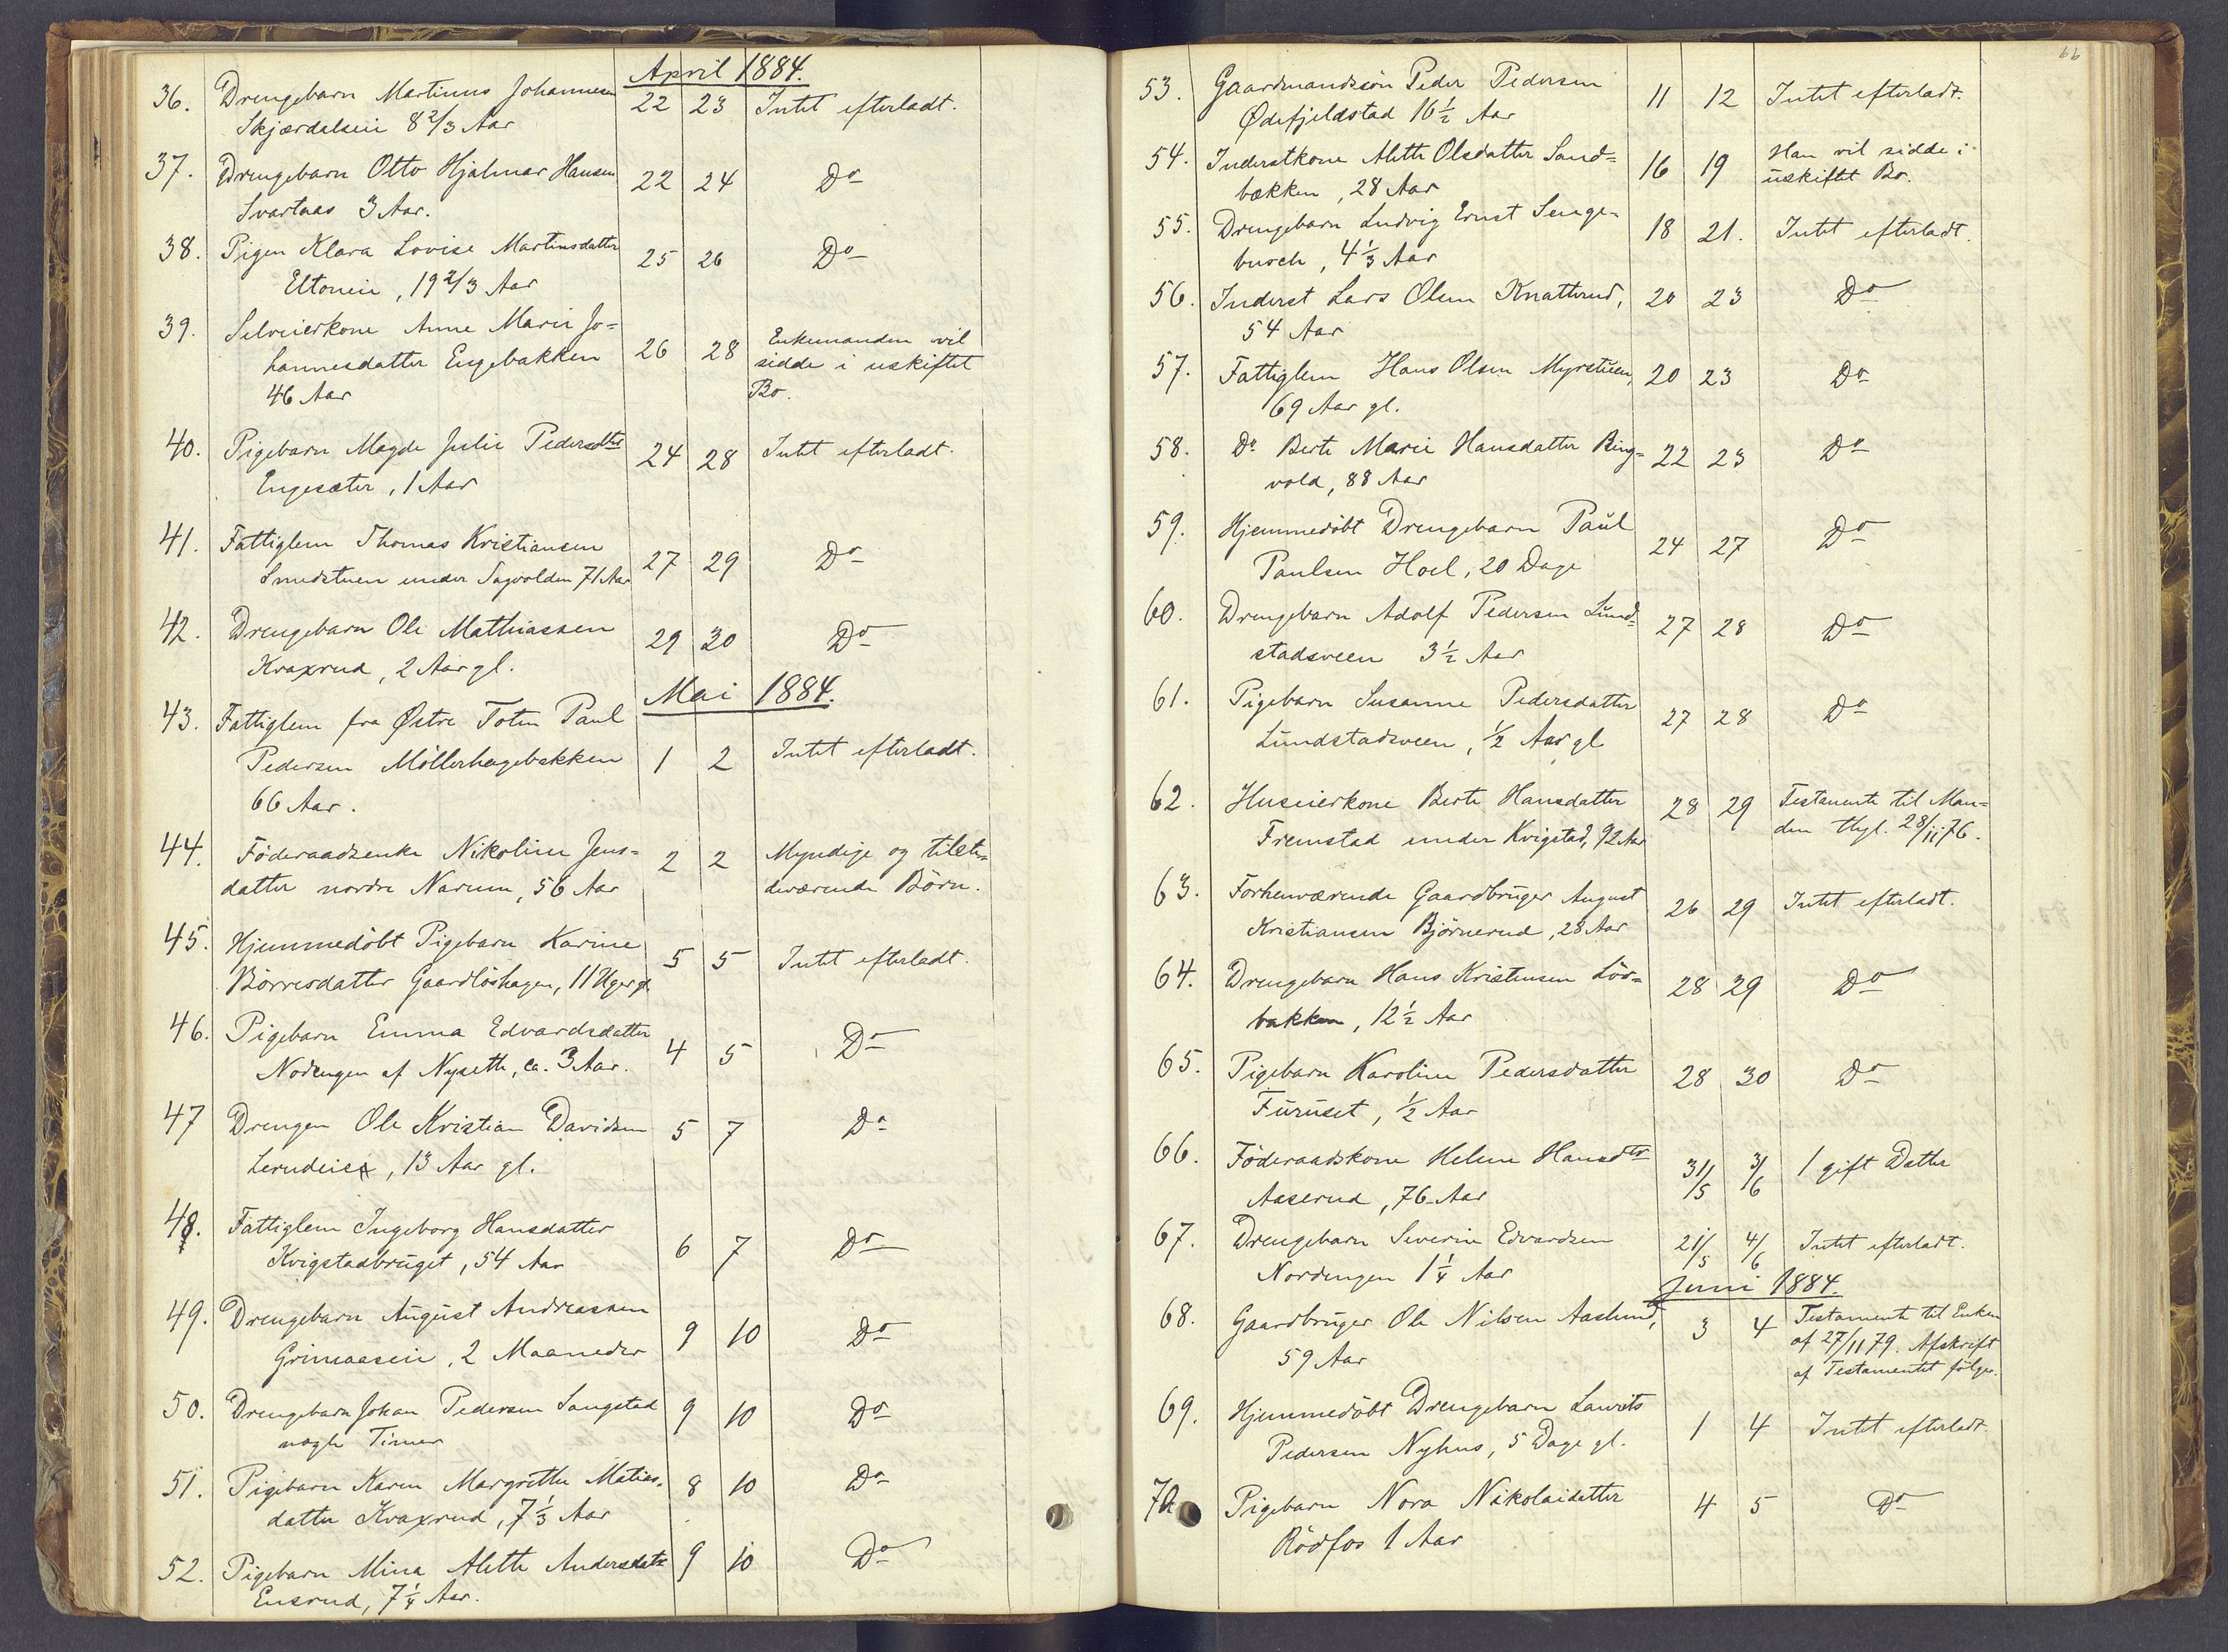 April 1884.
36. Drengebarn Martinus Johannesen 22 23 Intet efterladt.
Skjærdalseie 8 2/3 Aar
37. Drengebarn Otto Hjalmar Hansen 22 24 Do
Svartaas 3 Aar.
38. Pigen Klara Lovise Martinsdatter 25 26 Do
Eltoneie, 19 2/3 Aar
39. Selveierkone Anne Marie Jo= 26 28 Enkemanden vil
hannesdatter Engebakken sidde i uskiftet
46 Aar Bo.
40. Pigebarn Magde Julie Pedersdtr 24 28 Intet efterladt.
Engesæter, 1 Aar
41. Fattiglem Thomas Kristiansen 27 29 Do
Smedstuen under Sagvolden 71 Aar
42. Drengebarn Ole Mathiassen 29 30 Do
Kraxrud, 2 Aar gl.
Mai 1884.
43. Fattiglem fra Østre Toten Paul
Pedersen Möllerhagebakken 1 2 Intet efterladt.
66 Aar.
44. Föderaadsenke Nikoline Jens= 2 2 Myndige og tilste-
datter nordre Narum, 56 Aar deværende Börn.
45. Hjemmedöbt Pigebarn Karine 5 5 Intet efterladt.
Börresdatter Gaardlöshagen, 11 Uger gl.
46. Pigebarn Emma Edvardsdatter 4 5 Do
Nordengen af Nyseth, ca. 3 Aar.
47 Drengen Ole Kristian Davidsen 5 7 Do
Lerudeie, 13 Aar gl.
48. Fattiglem Ingeborg Hansdatter 6 7 Do
Kvigstadbruget, 54 Aar
49. Drengebarn August Andreassen 9 10 Do
Grimaaseie, 2 Maaneder
50. Drengebarn Johan Pedersen Sangstad 9 10 Do
nogle Timer
51. Pigebarn Karen Margrethe Matias- 8 10 Do
datter Kraxrud, 7 1/3 Aar
52. Pigebarn Mina Alethe Andersdatr 9 10 Do
Ensrud, 7 1/4 Aar.
66
53. Gaardmandssön Peder Pedersen 11 12 Intet efterladt.
Ødefjeldstad 16 1/2 Aar
54. Inderstkone Alethe Olsdatter Sand= 16 19 Han vil sidde i
bækken, 28 Aar uskiftet Bo.
55. Drengebarn Ludvig Ernst Senge- 18 21. Intet efterladt.
busch, 4 1/3 Aar
56. Inderst Lars Olsen Knatterud, 20 23 Do
54 Aar
57. Fattiglem Hans Olsen Myrstuen, 20 23 Do
69 Aar gl.
58. Do Berte Marie Hansdatter Ring= 22 23 Do
vold, 88 Aar
59. Hjemmedöbt Drengebarn Paul 24 27 Do
Paulsen Hoel, 20 Dage
60. Drengebarn Adolf Pedersen Lund= 27 28 Do
stadsveen 3 1/2 Aar
61. Pigebarn Susanne Pedersdatter 27 28 Do
Lundstadsveen, 1/2 Aar gl
62. Huseierkone Berte Hansdatter 28 29 Testamente til Man=
Fremstad under Kvigstad, 92 Aar den thgl. 28/11 76.
63. Forhenværende Gaardbruger August 26 29 Intet efterladt.
Kristiansen Björnerud, 28 Aar
64. Drengebarn Hans Kristensen Lös= 28 29 Do
bakken, 12 1/2 Aar
65. Pigebarn Karoline Pedersdatter 28 30 Do
Furuset, 1/2 Aar
66. Föderaadskone Helene Hansdtr 31/5 3/6 1 gift Datter
Aaserud, 76 Aar
67. Drengebarn Severin Edvardsen 21/5 4/6 Intet efterladt.
Nordengen 1 1/4 Aar
Juni 1884.
68. Gaardbruger Ole Nilsen Aaslund, 3 4 Testamente til Enken
59 Aar af 27/11 79. Afskrift
af Testamentet fölger.
69. Hjemmedöbt Drengebarn Laurits 1 4 Intet efterladt
Pedersen Nyhus, 5 Dage gl.
70 Pigebarn Nora Nikolaidatter 4 5 Do
Rödfos 1 Aar